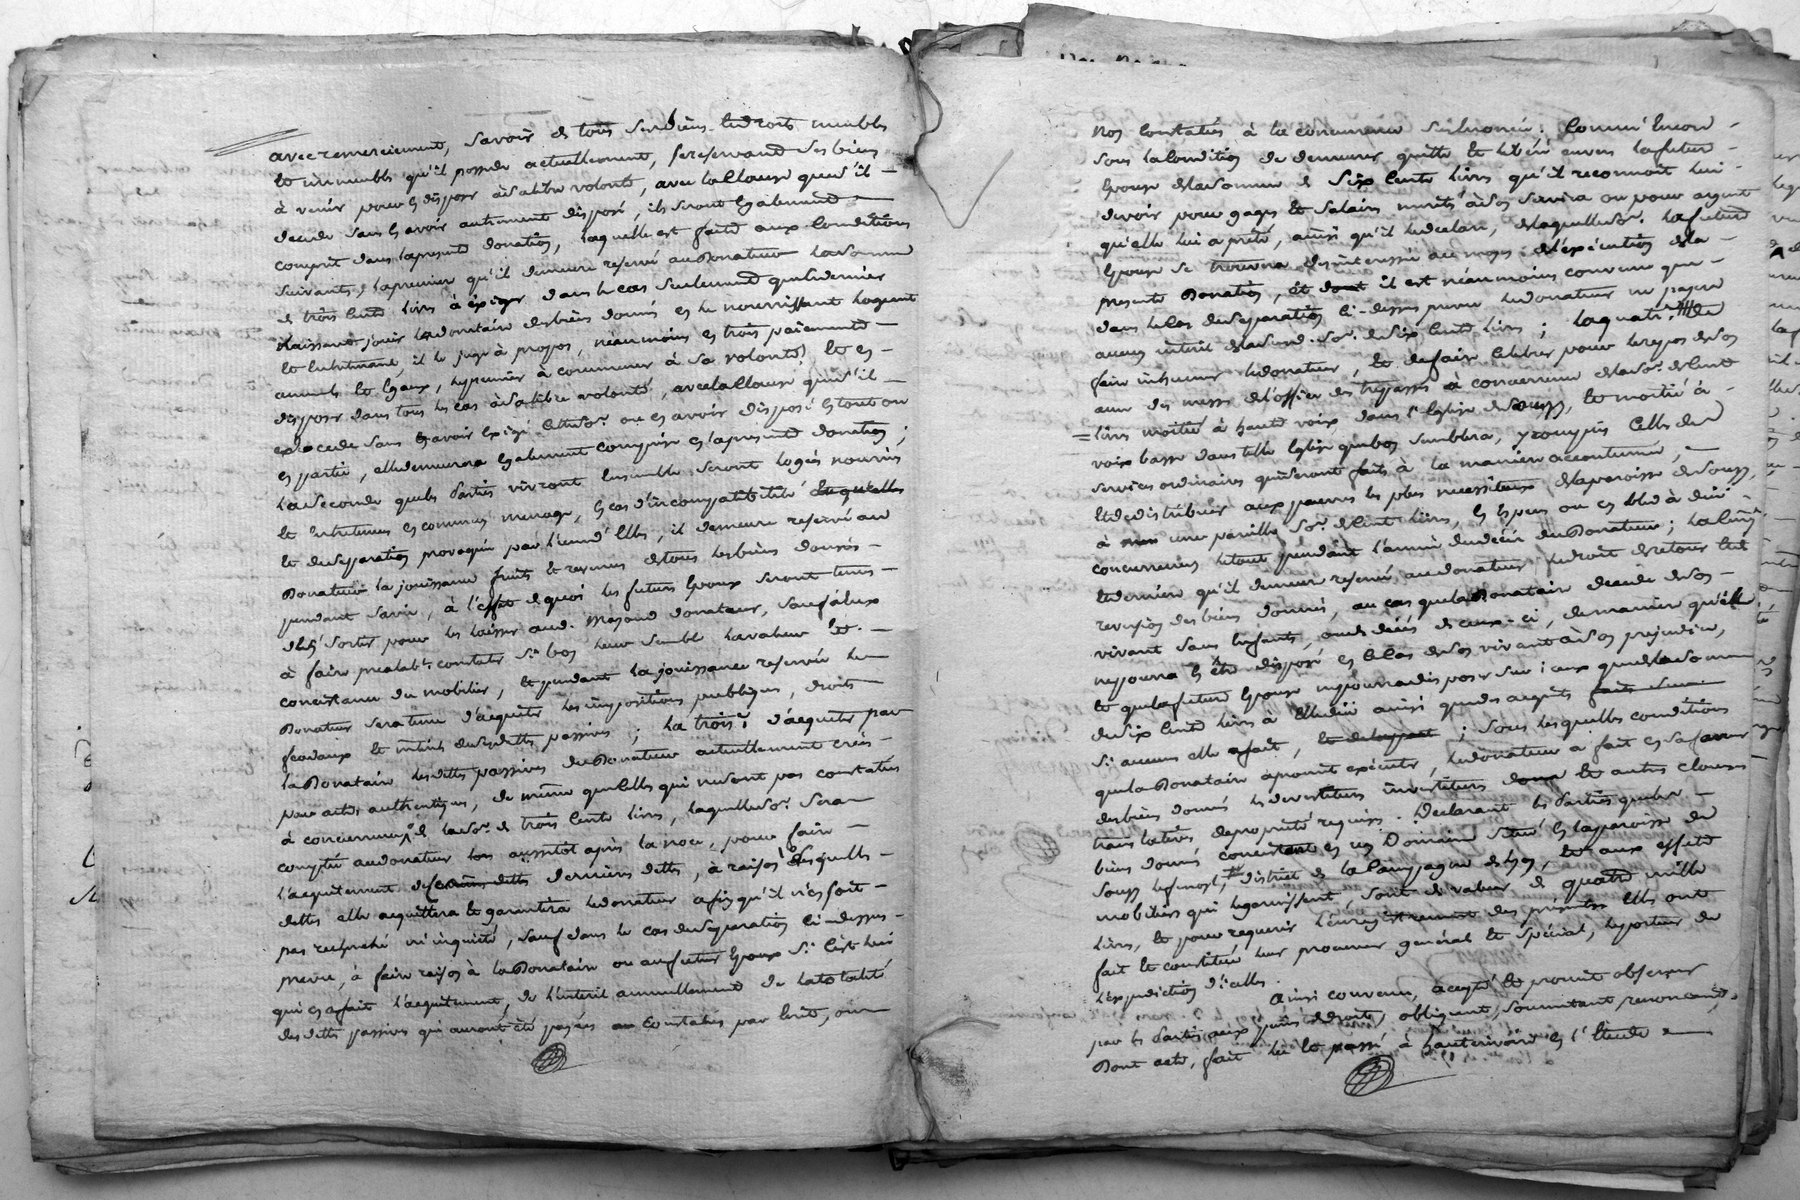 avec remerciement, savoir de tous ses biens et droits meubles
et immeubles qu'il possede actuellement, se reservant ses biens
à venir pour en disposer à sa libre volonté, avec la clause que s'il
decede sans en avoir autrement disposé, ils seront egalement
compris dans la presente donation, laquelle est faite aux conditions
suivantes, la premiere qu'il demeure reservé au Donateur la somme
de trois cents livres à exiger dans le cas seulement que le dernier
laissant jouir la donataire des biens donnés en le nourrissant logeant
et l'entretenant, il le juge à propos, néanmoins en trois paiements
annuels et egaux, le premier à commencer à sa volonté, et en
disposer dans tous les cas à sa libre volonté, avec la clause que s'il
decede sans avoir exigé cette so.e ou en avoir disposé en tout ou
en partie, elle demeurera egalement comprise en la presente donation;
la seconde que les parties vivront ensemble seront logés nourris
et entretenus en commun menage, en cas d'incompatibilité
et de separation provoquée par l'une d'elles, il demeure reservé au
Donateur la jouissance fruits et revenus de tous les biens donnés
pendant sa vie, à l'effet de quoi les futurs epoux seront tenus
d'en sortir pour les laisser aud. donateur, sauf à eux
à faire prealab.t constater si bon leur semble la valeur et
consistance du mobilier, et pendant la jouissance reservée le
Donateur sera tenu d'acquitter les impositions publiques, droits
feodaux et interets de ses dettes passives; la trois.e d'acquitter par
la Donataire les dettes passives du Donateur actuellement créés
par actes authentiques, de même que celles qui ne sont pas constatées
à concurrence de la so.e de trois cents livres, laquelle so.e sera
comptée au donateur lors aussitot après la noce, pour faire
l'acquittement de ces dernieres dettes, à raison desquelles
dettes elle acquittera et garantira le donateur afin qu'il n'en soit
pas recherché ni inquieté, sauf dans le cas de separation ci-dessus
prevu, à faire raison à la Donataire ou au futur epoux si c'est lui
qui en a fait l'acquittement, de l'interet annuellement de la totalité
des dettes passives qui auront été payées constatées par ecrit, ou
non constatées à la concurrence sus enoncée. Comm'encore
sous la condition de demeurer quitte et liberé envers la future
epouse de la somme de six cents livres qu'il reconnoit lui
devoir pour gages et salaires merités à son service ou pour argent
qu'elle lui a prêté, ainsi qu'il le declare, de laquelle so.e la future
epouse se trouvera desinteressée au moyen de l'exécution de la
presente Donation, et il est néanmoins convenu que
dans le cas de separation ci-dessus prevu le donateur ne payera
aucun interet de lad. so.e de six cents livres; la quatrieme de
faire inhumer le donateur, et de faire celebrer pour le repos de son
ame des messes de l'office des trepassés à concurrence de la so.e de cent
livres moitié à haute voix dans l'Eglise de Souzy, et moitié à
voix basse dans telle Eglise que bon semblera, y compris celles des
services ordinaires qui seront faits à la maniere accoutumée,
et de distribuer aux pauvres les plus necessiteux de la paroisse de Souzy,
à une pareille so.e de cent livres, en especes ou en bled à due
concurrence le tout pendant l'année du decès du Donateur; la cinq.e
et derniere qu'il demeure reservé au donateur le droit de retour et
reversion des biens donnés, au cas que la Donataire decede de son
vivant sans enfants, ou de decès de ceux-ci, de maniere qu'elle
ne pourra en être disposé en le cas de son vivant à son prejudice,
et que la future epouse ne pourra disposer sur iceux que de la somme
de six cents livres à elle due ainsi que des acquets
si aucuns elle a fait, ; sous lesquelles conditions
que la Donataire a promis executer, le donateur a fait en sa faveur
des biens donnés les devestitures investitures et autres clauses
translatives de proprieté requises. Declarant les parties que les
biens donnés consistent en un Domaine situé en la paroisse de
Souzy, district de la campagne de Lyon, et aux effets
mobiliers qui le garnissent, sont de valeur de quatre mille
livres, et pour requerir l'enregistrement des presentes elles ont
fait et constitué leur procureur general et special, le porteur de
l'expedition d'icelles.
Ainsi convenu, accepté et promis observer
par les parties aux peines de droit, obligeant, soumettant, renonceant,
Dont acte, fait lu et passé à hauterivoire en l'etude